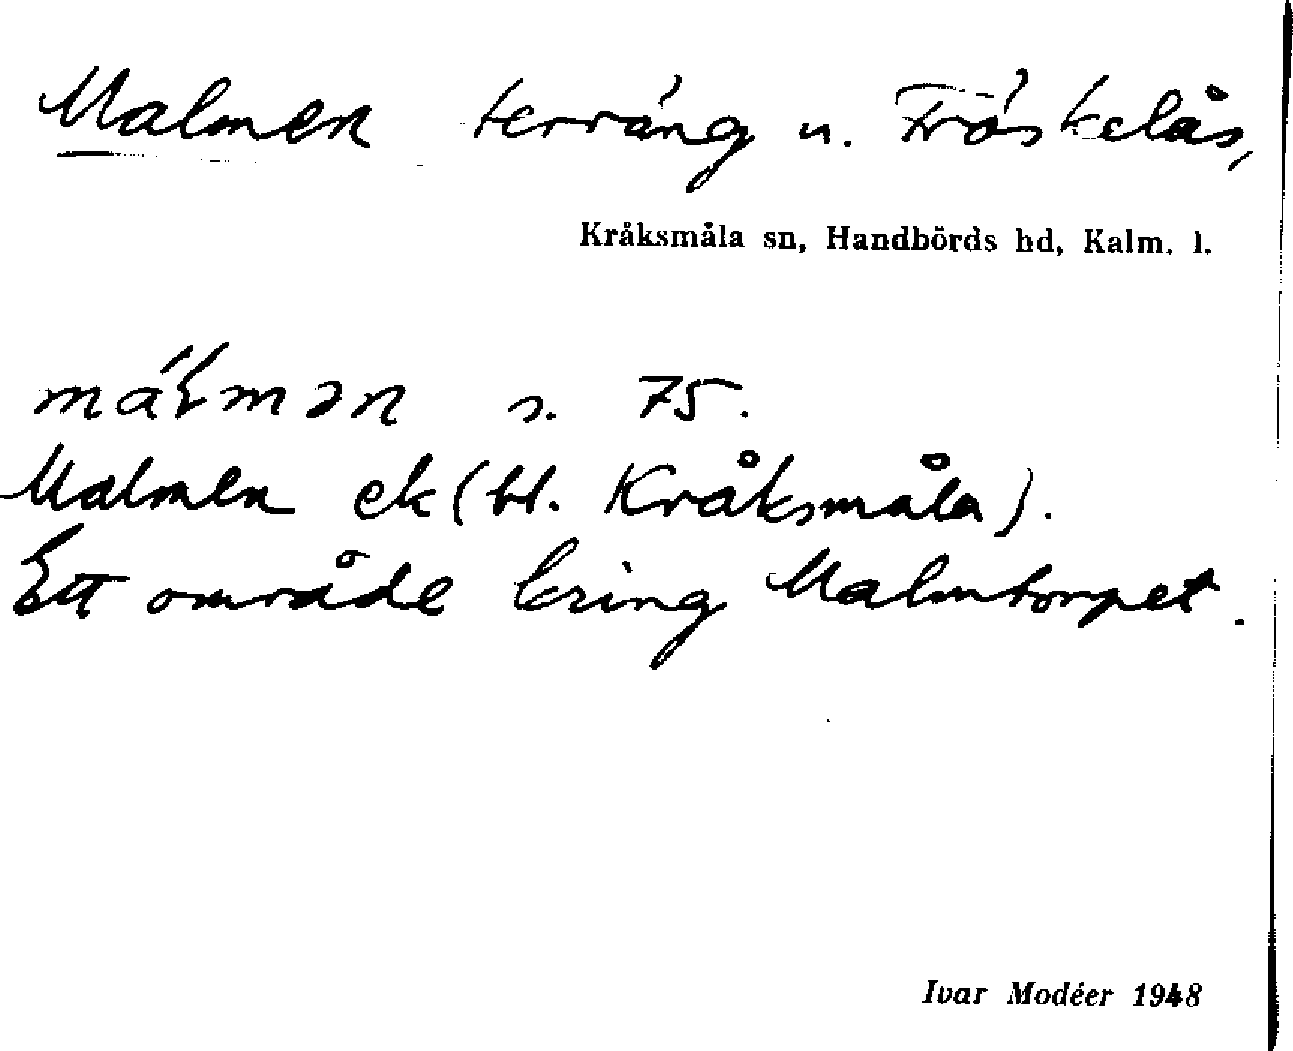 Malmen terräng u. Fröskelås,
Kråksmåla sn, Handbörds hd, Kalm. l.
máʟmən s. 75.
Malmen ek (bl. Kråksmåla).
Ett område kring Malmtorpet.
Ivar Modéer 1948